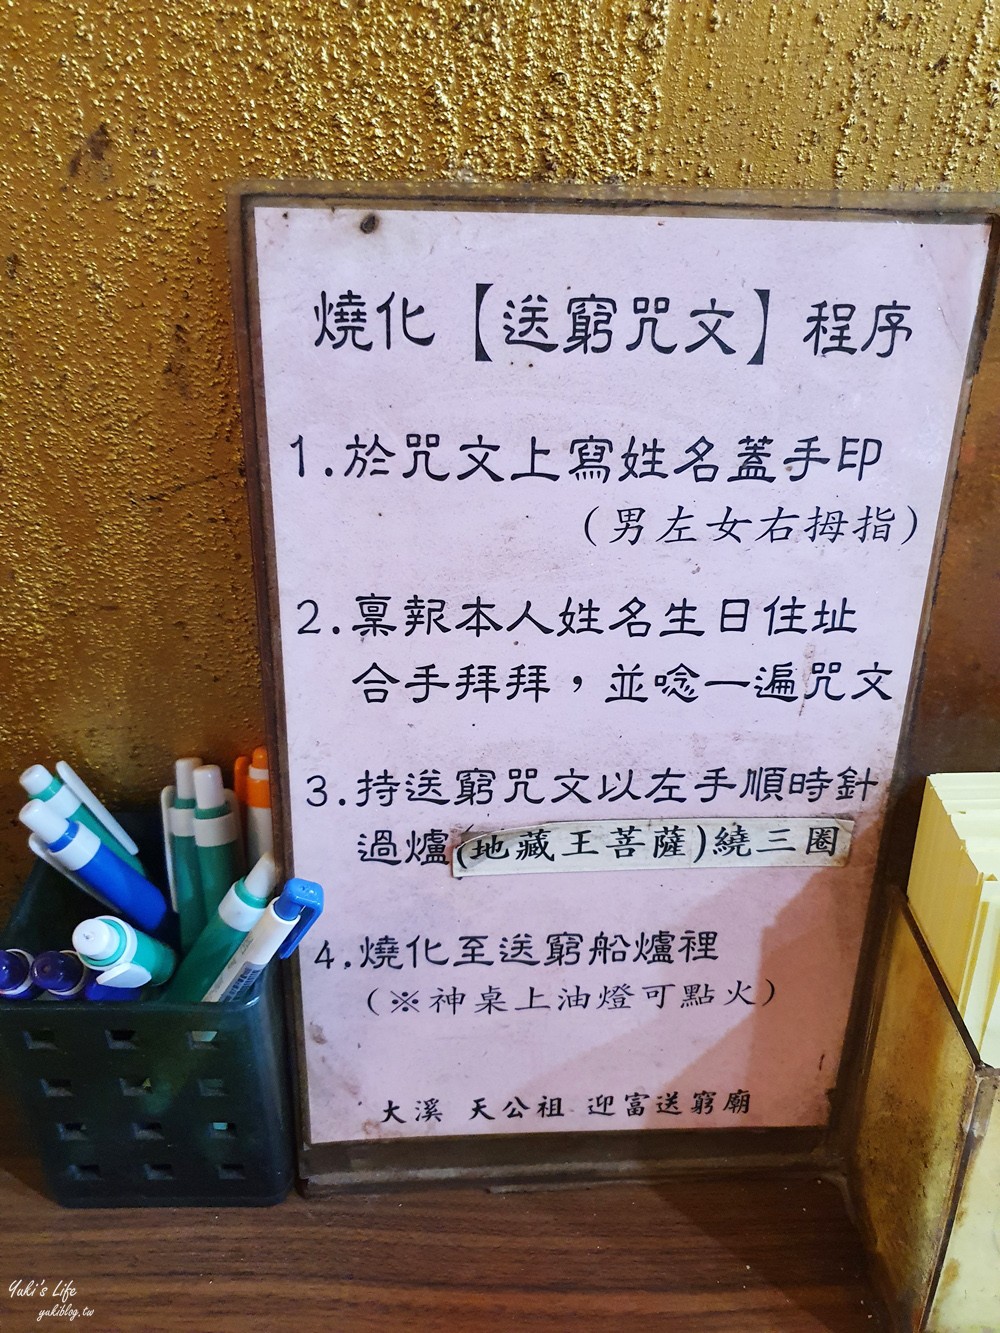 燒化【送窮咒文】程序
1.於咒文上寫姓名蓋手印
(男左女右拇指)
2.稟報本人姓名生日住址
合手拜拜，並唸一遍咒文
3.持送窮咒文以左手順時針
過爐(地藏王菩薩)繞三圈
4.燒化至送窮船爐裡
(※神桌上油燈可點火)
大溪 天公祖 迎富送窮廟
Yuki's Life
yukiblog.tw